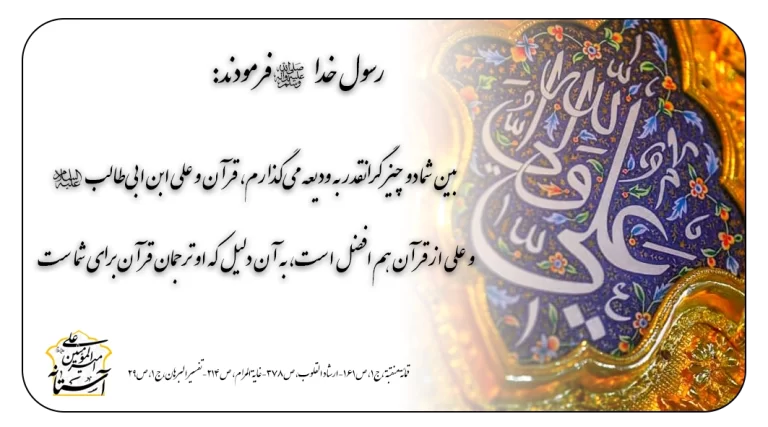 رسول خدا ﷺ فرمودند:
بین شما دو چیز گرانقدر به ودیعه می‌گذارم، قرآن و علی ابن ابی‌طالب علیه‌السلام
و علی از قرآن هم افضل است، به آن دلیل که او ترجمان قرآن برای شماست
ج۱، ص۱۶۱-ارشادالقلوب، ص۳۷۸-غایةالمرام، ص۲۱۴-تفسیرالبرهان، ج۱، ص۲۹
علی ولی الله
آستانه امیرالمؤمنین علی